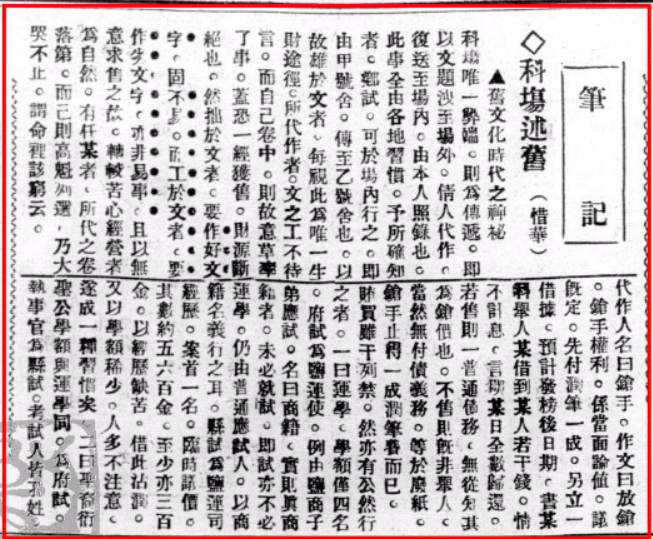 筆記
◇科場述舊（惜華）
▲舊文化時代之神秘
科場唯一弊端。則為傳遞。即
以文題洩至場外。倩人代作。
復送至場內。由本人照錄也。
此事全由各地習慣。予所確知
者。鄉試。可於場內行之。即
由甲號舍。傳至乙號舍也。以
故雄於文者。每視此為唯一生
財途徑。所代作者。文之工不待
言。而自己卷中。則故意草率
了事。蓋恐一經獲售。財源斷
絕也。然拙於文者。要作好文
字。固不易。而工於文者。要
作劣文字。亦非易事。且以無
意求售之故。輒較苦心經營者
為自然。有任某者。所代之卷
落第。而己則高魁列選。乃大
哭不止。謂命裡該窮云。
代作人名曰鎗手。作文曰放鎗
。鎗手權利。係當面論値。議
既定。先付潤筆一成。另立一
借據。預計發榜後日期。書某
科舉人某借到某人若干錢。情
不計息。言期某日全數歸還。
若售則一普通債務。無從知其
為鎗價也。不售則既非舉人。
當然無付債義務。等於廢紙。
鎗手止得一成潤筆費而已。
賄買雖干列禁。然亦有公然行
之者。一曰運學。學額僅四名
。府試為鹽運使。例由鹽商子
弟應試。名曰商籍。實則眞商
籍者。未必就試。即試亦不必
運學。仍由普通應試人。以商
籍名義行之耳。縣試為鹽運司
經歷。案首一名。臨時議價。
其數約五六百金。至少亦三百
金。以經歷缺苦。借此沾潤。
又以學額稀少。人多不注意。
遂成一種習慣矣。二曰聖裔衍
聖公學額與運學同。為府試。
執事官為縣試。考試人皆孔姓。